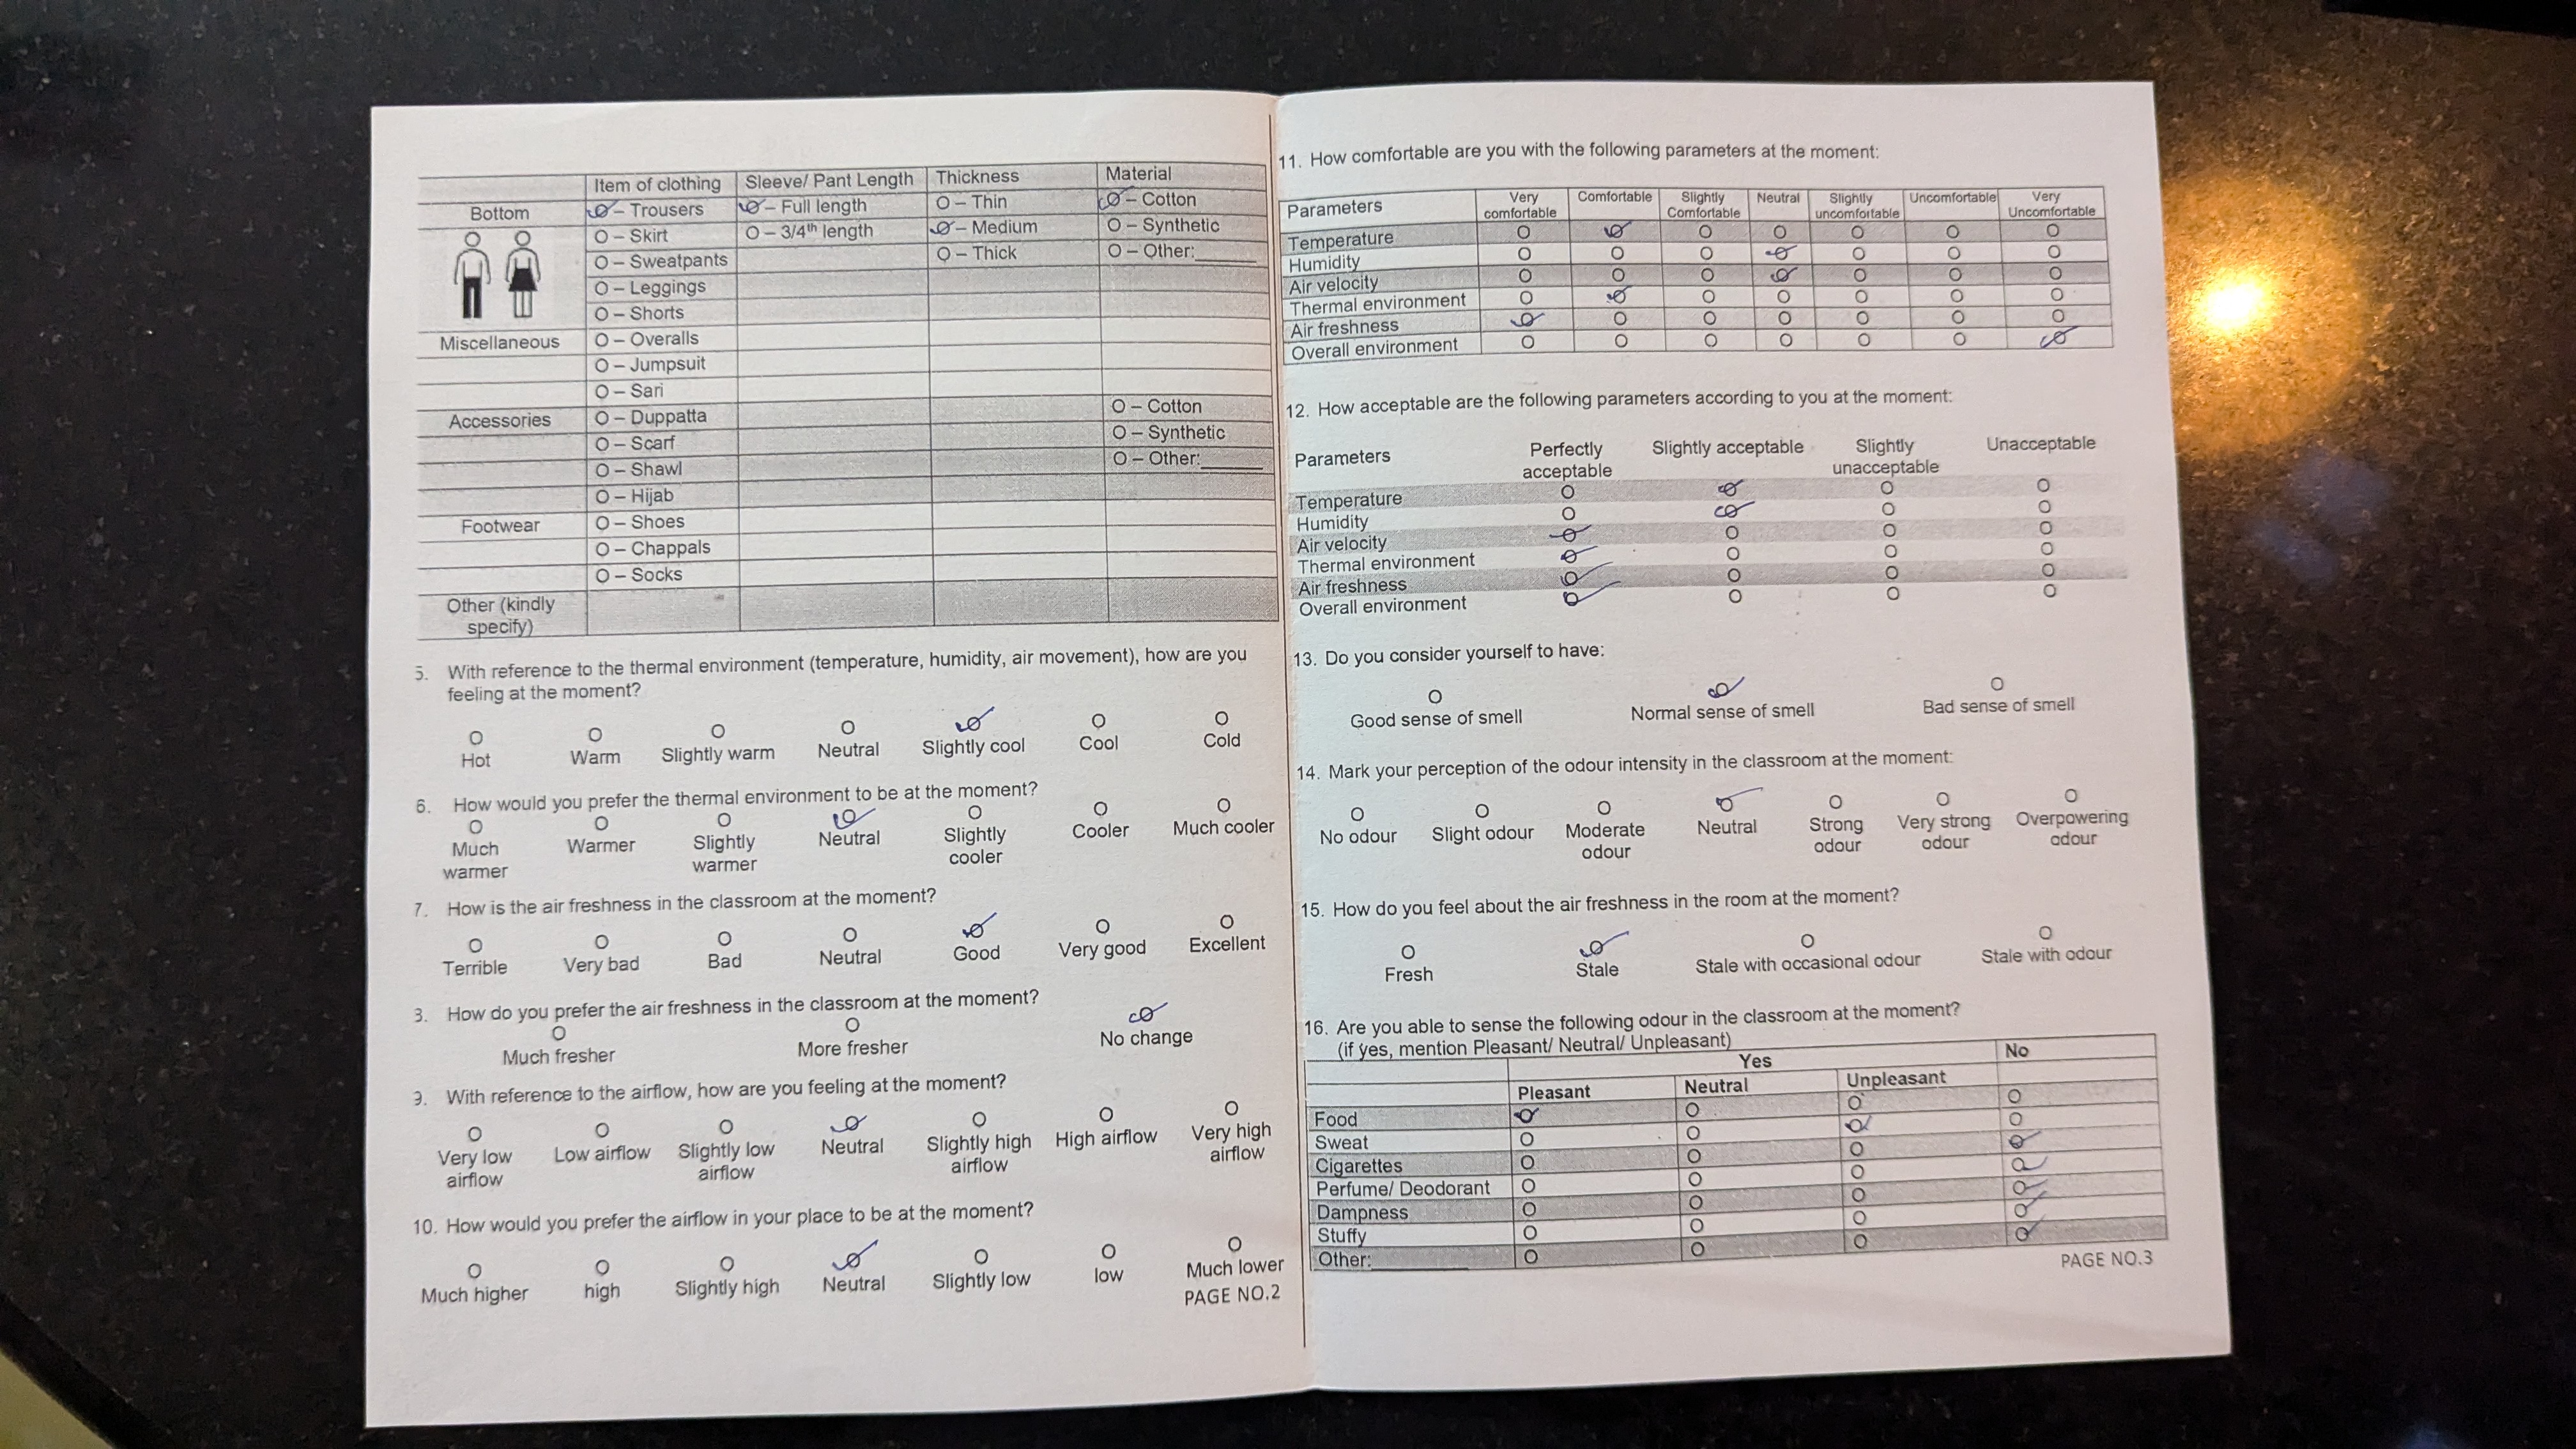 Item of clothing Sleeve/ Pant Length Thickness Material
Bottom O – Trousers O – Full length O – Thin O – Cotton
O – Skirt O – 3/4th length O – Medium O – Synthetic
O – Sweatpants O – Thick O – Other:______
O – Leggings
O – Shorts
Miscellaneous O – Overalls
O – Jumpsuit
O – Sari
Accessories O – Duppatta O – Cotton
O – Scarf O – Synthetic
O – Shawl O – Other:______
O – Hijab
Footwear O – Shoes
O – Chappals
O – Socks
Other (kindly
specify)
5. With reference to the thermal environment (temperature, humidity, air movement), how are you
feeling at the moment?
O O O O O O O
Hot Warm Slightly warm Neutral Slightly cool Cool Cold
6. How would you prefer the thermal environment to be at the moment?
O O O O O O O
Much Warmer Slightly Neutral Slightly Cooler Much cooler
warmer warmer cooler
7. How is the air freshness in the classroom at the moment?
O O O O O O O
Terrible Very bad Bad Neutral Good Very good Excellent
3. How do you prefer the air freshness in the classroom at the moment?
O O O
Much fresher More fresher No change
9. With reference to the airflow, how are you feeling at the moment?
O O O O O O O
Very low Low airflow Slightly low Neutral Slightly high High airflow Very high
airflow airflow airflow airflow
10. How would you prefer the airflow in your place to be at the moment?
O O O O O O O
Much higher high Slightly high Neutral Slightly low low Much lower
PAGE NO.2
11. How comfortable are you with the following parameters at the moment:
Parameters Very Comfortable Slightly Neutral Slightly Uncomfortable Very
comfortable Comfortable uncomfortable Uncomfortable
Temperature O O O O O O O
Humidity O O O O O O O
Air velocity O O O O O O O
Thermal environment O O O O O O O
Air freshness O O O O O O O
Overall environment O O O O O O O
12. How acceptable are the following parameters according to you at the moment:
Parameters Perfectly Slightly acceptable Slightly Unacceptable
acceptable unacceptable
Temperature O O O O
Humidity O O O O
Air velocity O O O O
Thermal environment O O O O
Air freshness O O O O
Overall environment O O O O
13. Do you consider yourself to have:
O O O
Good sense of smell Normal sense of smell Bad sense of smell
14. Mark your perception of the odour intensity in the classroom at the moment:
O O O O O O O
No odour Slight odour Moderate Neutral Strong Very strong Overpowering
odour odour odour odour
15. How do you feel about the air freshness in the room at the moment?
O O O O
Fresh Stale Stale with occasional odour Stale with odour
16. Are you able to sense the following odour in the classroom at the moment?
(if yes, mention Pleasant/ Neutral/ Unpleasant)
Yes No
Pleasant Neutral Unpleasant
Food O O O O
Sweat O O O O
Cigarettes O O O O
Perfume/ Deodorant O O O O
Dampness O O O O
Stuffy O O O O
Other:__________ O O O O
PAGE NO.3